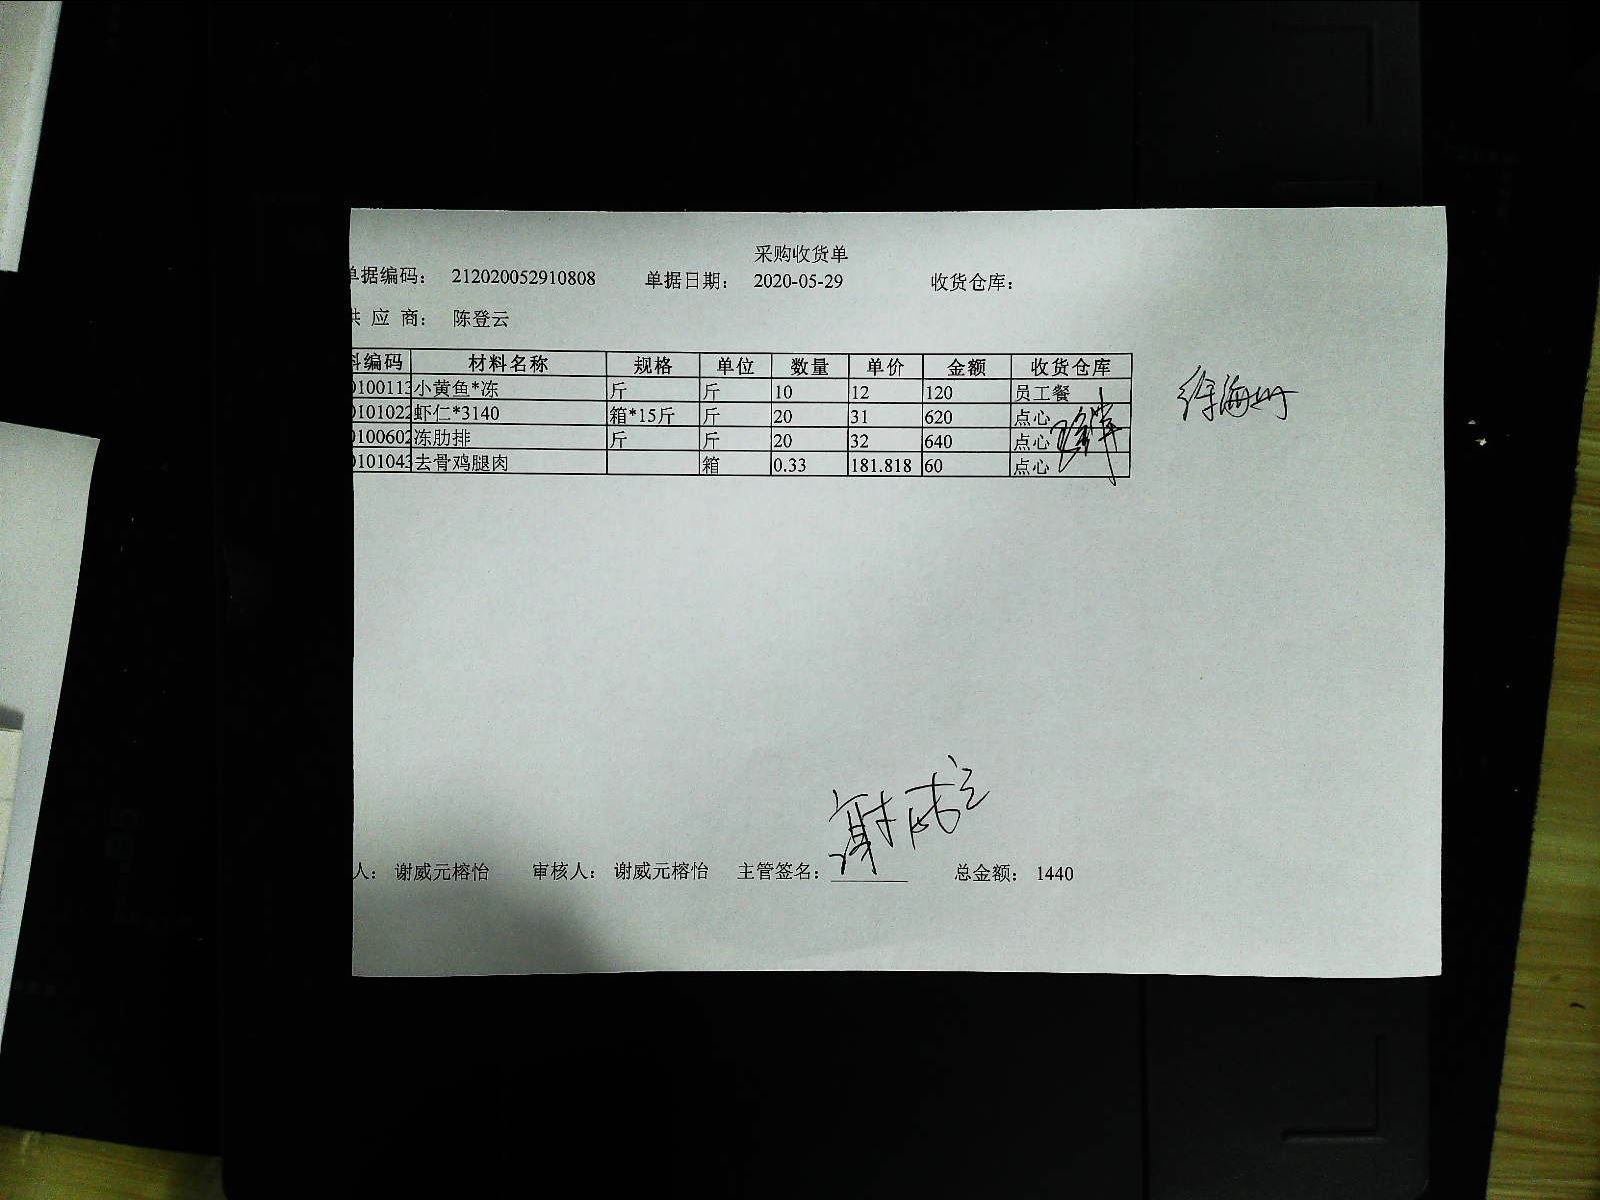 采购收货单
单据编码： 212020052910808 单据日期： 2020-05-29 收货仓库：
供 应 商： 陈登云
料编码 材料名称 规格 单位 数量 单价 金额 收货仓库
0100113 小黄鱼*冻 斤 斤 10 12 120 员工餐
0101022 虾仁*3140 箱*15斤 斤 20 31 620 点心
0100602 冻肋排 斤 斤 20 32 640 点心
0101043 去骨鸡腿肉 箱 0.33 181.818 60 点心
谢威元
人： 谢威元榕怡 审核人： 谢威元榕怡 主管签名： 总金额： 1440